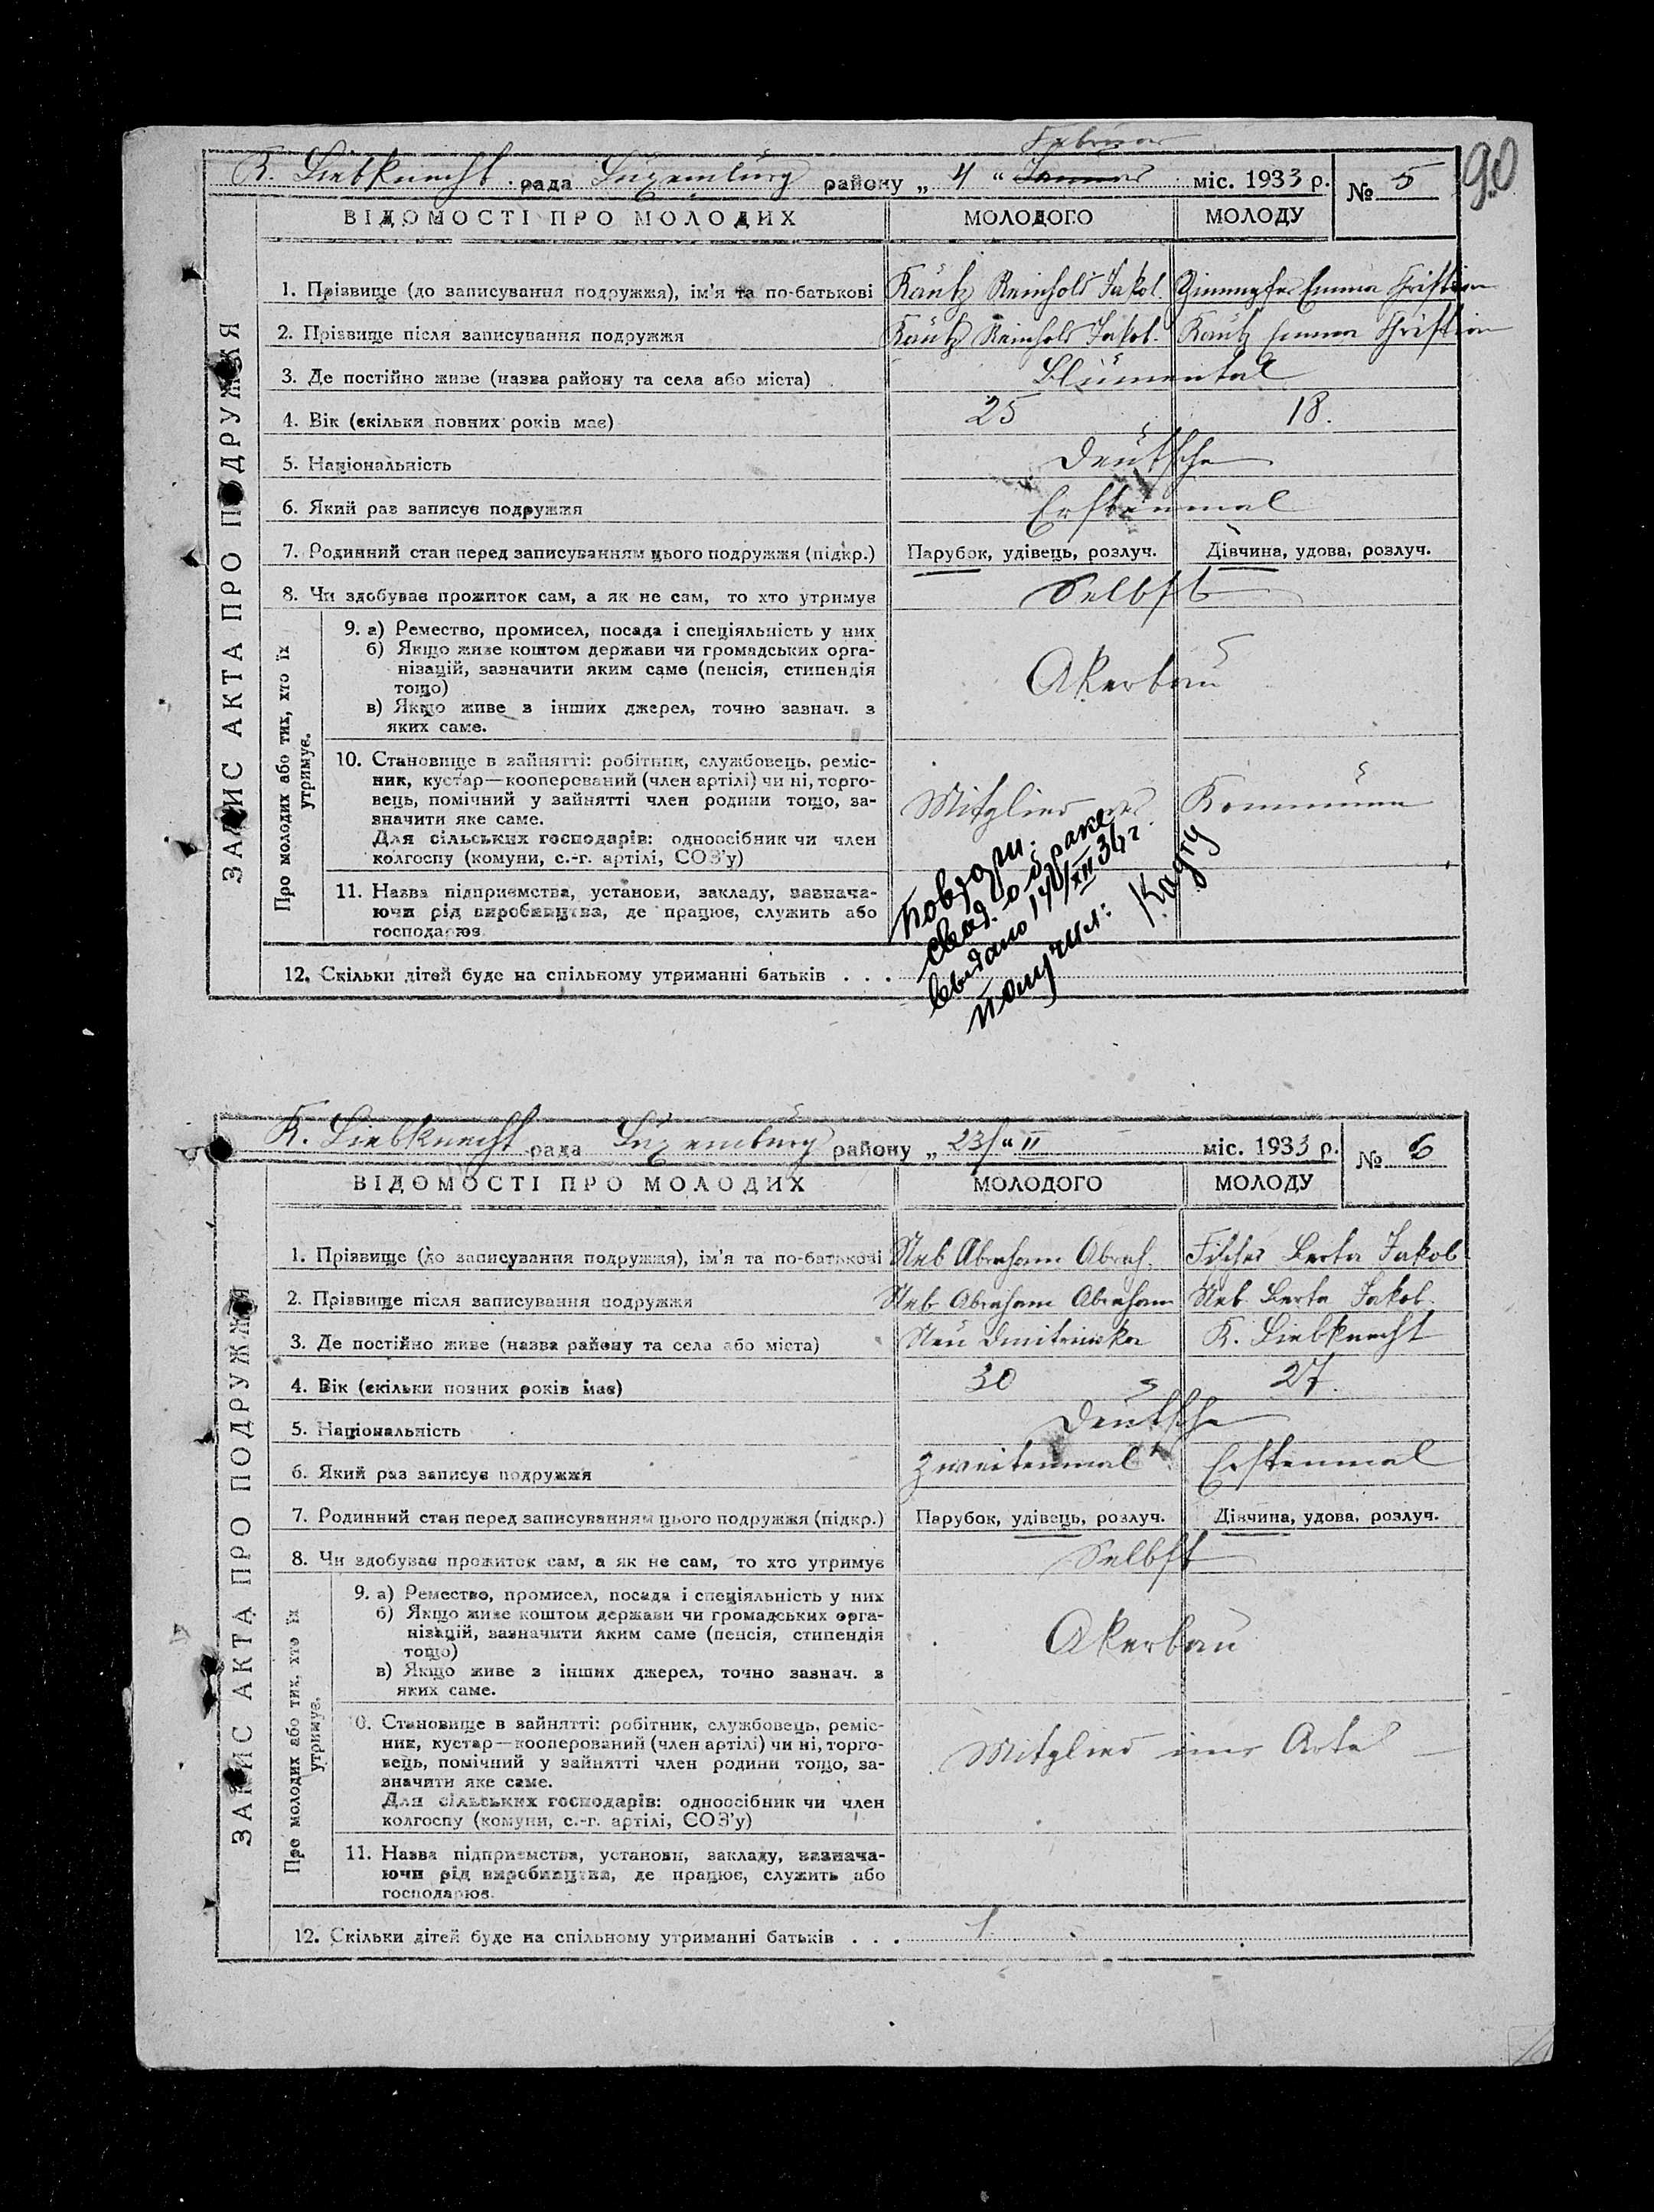 Februar
K. Liebknecht рада Luxemburg району „ 4 “ Januar міс. 1933 р. № 5
90
ВІДОМОСТІ ПРО МОЛОДИХ МОЛОДОГО МОЛОДУ
ЗАПИС АКТА ПРО ПОДРУЖЖЯ
1. Прізвище (до записування подружжя), ім'я та по-батькові Kautz Reinhold Jakob. Emma Christian
2. Прізвище після записування подружжя Kautz Reinhold Jakob. Kautz Emma Christian
3. Де постійно живе (назва району та села або міста) Blumental
4. Вік (скільки повних років має) 25 18.
5. Національність Deutsche
6. Який раз записує подружжя Erstenmal
7. Родинний стан перед записуванням цього подружжя (підкр.) Парубок, удівець, розлуч. Дівчина, удова, розлуч.
8. Чи здобуває прожиток сам, а як не сам, то хто утримує Selbst
Про молодих або тих, хто їх утримує.
9. а) Ремество, промисел, посада і спеціяльність у них
б) Якщо живе коштом держави чи громадських орга-
нізацій, зазначити яким саме (пенсія, стипендія
тощо)
в) Якщо живе з інших джерел, точно зазнач. з
яких саме.
Akerbau
10. Становище в зайнятті: робітник, службовець, реміс-
ник, кустар—кооперований (член артілі) чи ні, торго-
вець, помічний у зайнятті член родини тощо, за-
значити яке саме.
Для сільських господарів: одноосібник чи член
колгоспу (комуни, с.-г. артілі, СОЗ'у)
Mitglied der Kommune
11. Назва підприємства, установи, закладу, зазнача-
ючи рід виробництва, де працює, служить або
господарює
12. Скільки дітей буде на спільному утриманні батьків . . .
свид. о браке
выдано 14/XII 36 г
получил: Кауту
K. Liebknecht рада Luxemburg району „ 23/ “ II міс. 1933 р. № 6
ВІДОМОСТІ ПРО МОЛОДИХ МОЛОДОГО МОЛОДУ
ЗАПИС АКТА ПРО ПОДРУЖЖЯ
1. Прізвище (до записування подружжя), ім'я та по-батькові Abraham Abrah. Fischer Berta Jakob
2. Прізвище після записування подружжя Abraham Abraham Berta Jakob.
3. Де постійно живе (назва району та села або міста) Neu K. Liebknecht
4. Вік (скільки повних років має) 30 27.
5. Національність Deutsche
6. Який раз записує подружжя Zweitenmal Erstenmal
7. Родинний стан перед записуванням цього подружжя (підкр.) Парубок, удівець, розлуч. Дівчина, удова, розлуч.
8. Чи здобуває прожиток сам, а як не сам, то хто утримує Selbst
Про молодих або тих, хто їх утримує.
9. а) Ремество, промисел, посада і спеціяльність у них
б) Якщо живе коштом держави чи громадських орга-
нізацій, зазначити яким саме (пенсія, стипендія
тощо)
в) Якщо живе з інших джерел, точно зазнач. з
яких саме.
Akerbau
0. Становище в зайнятті: робітник, службовець, реміс-
ник, кустар—кооперований (член артілі) чи ні, торго-
вець, помічний у зайнятті член родини тощо, за-
значити яке саме.
Для сільських господарів: одноосібник чи член
колгоспу (комуни, с.-г. артілі, СОЗ'у)
Mitglied Artel
11. Назва підприємства, установи, закладу, зазнача-
ючи рід виробництва, де працює, служить або
господарює.
12. Скільки дітей буде на спільному утриманні батьків . . . 1